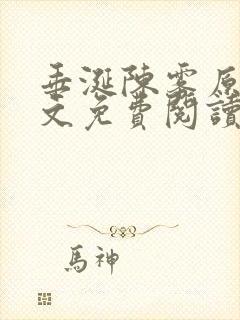 垂涎陳雾原
文免費閱讀
馬神